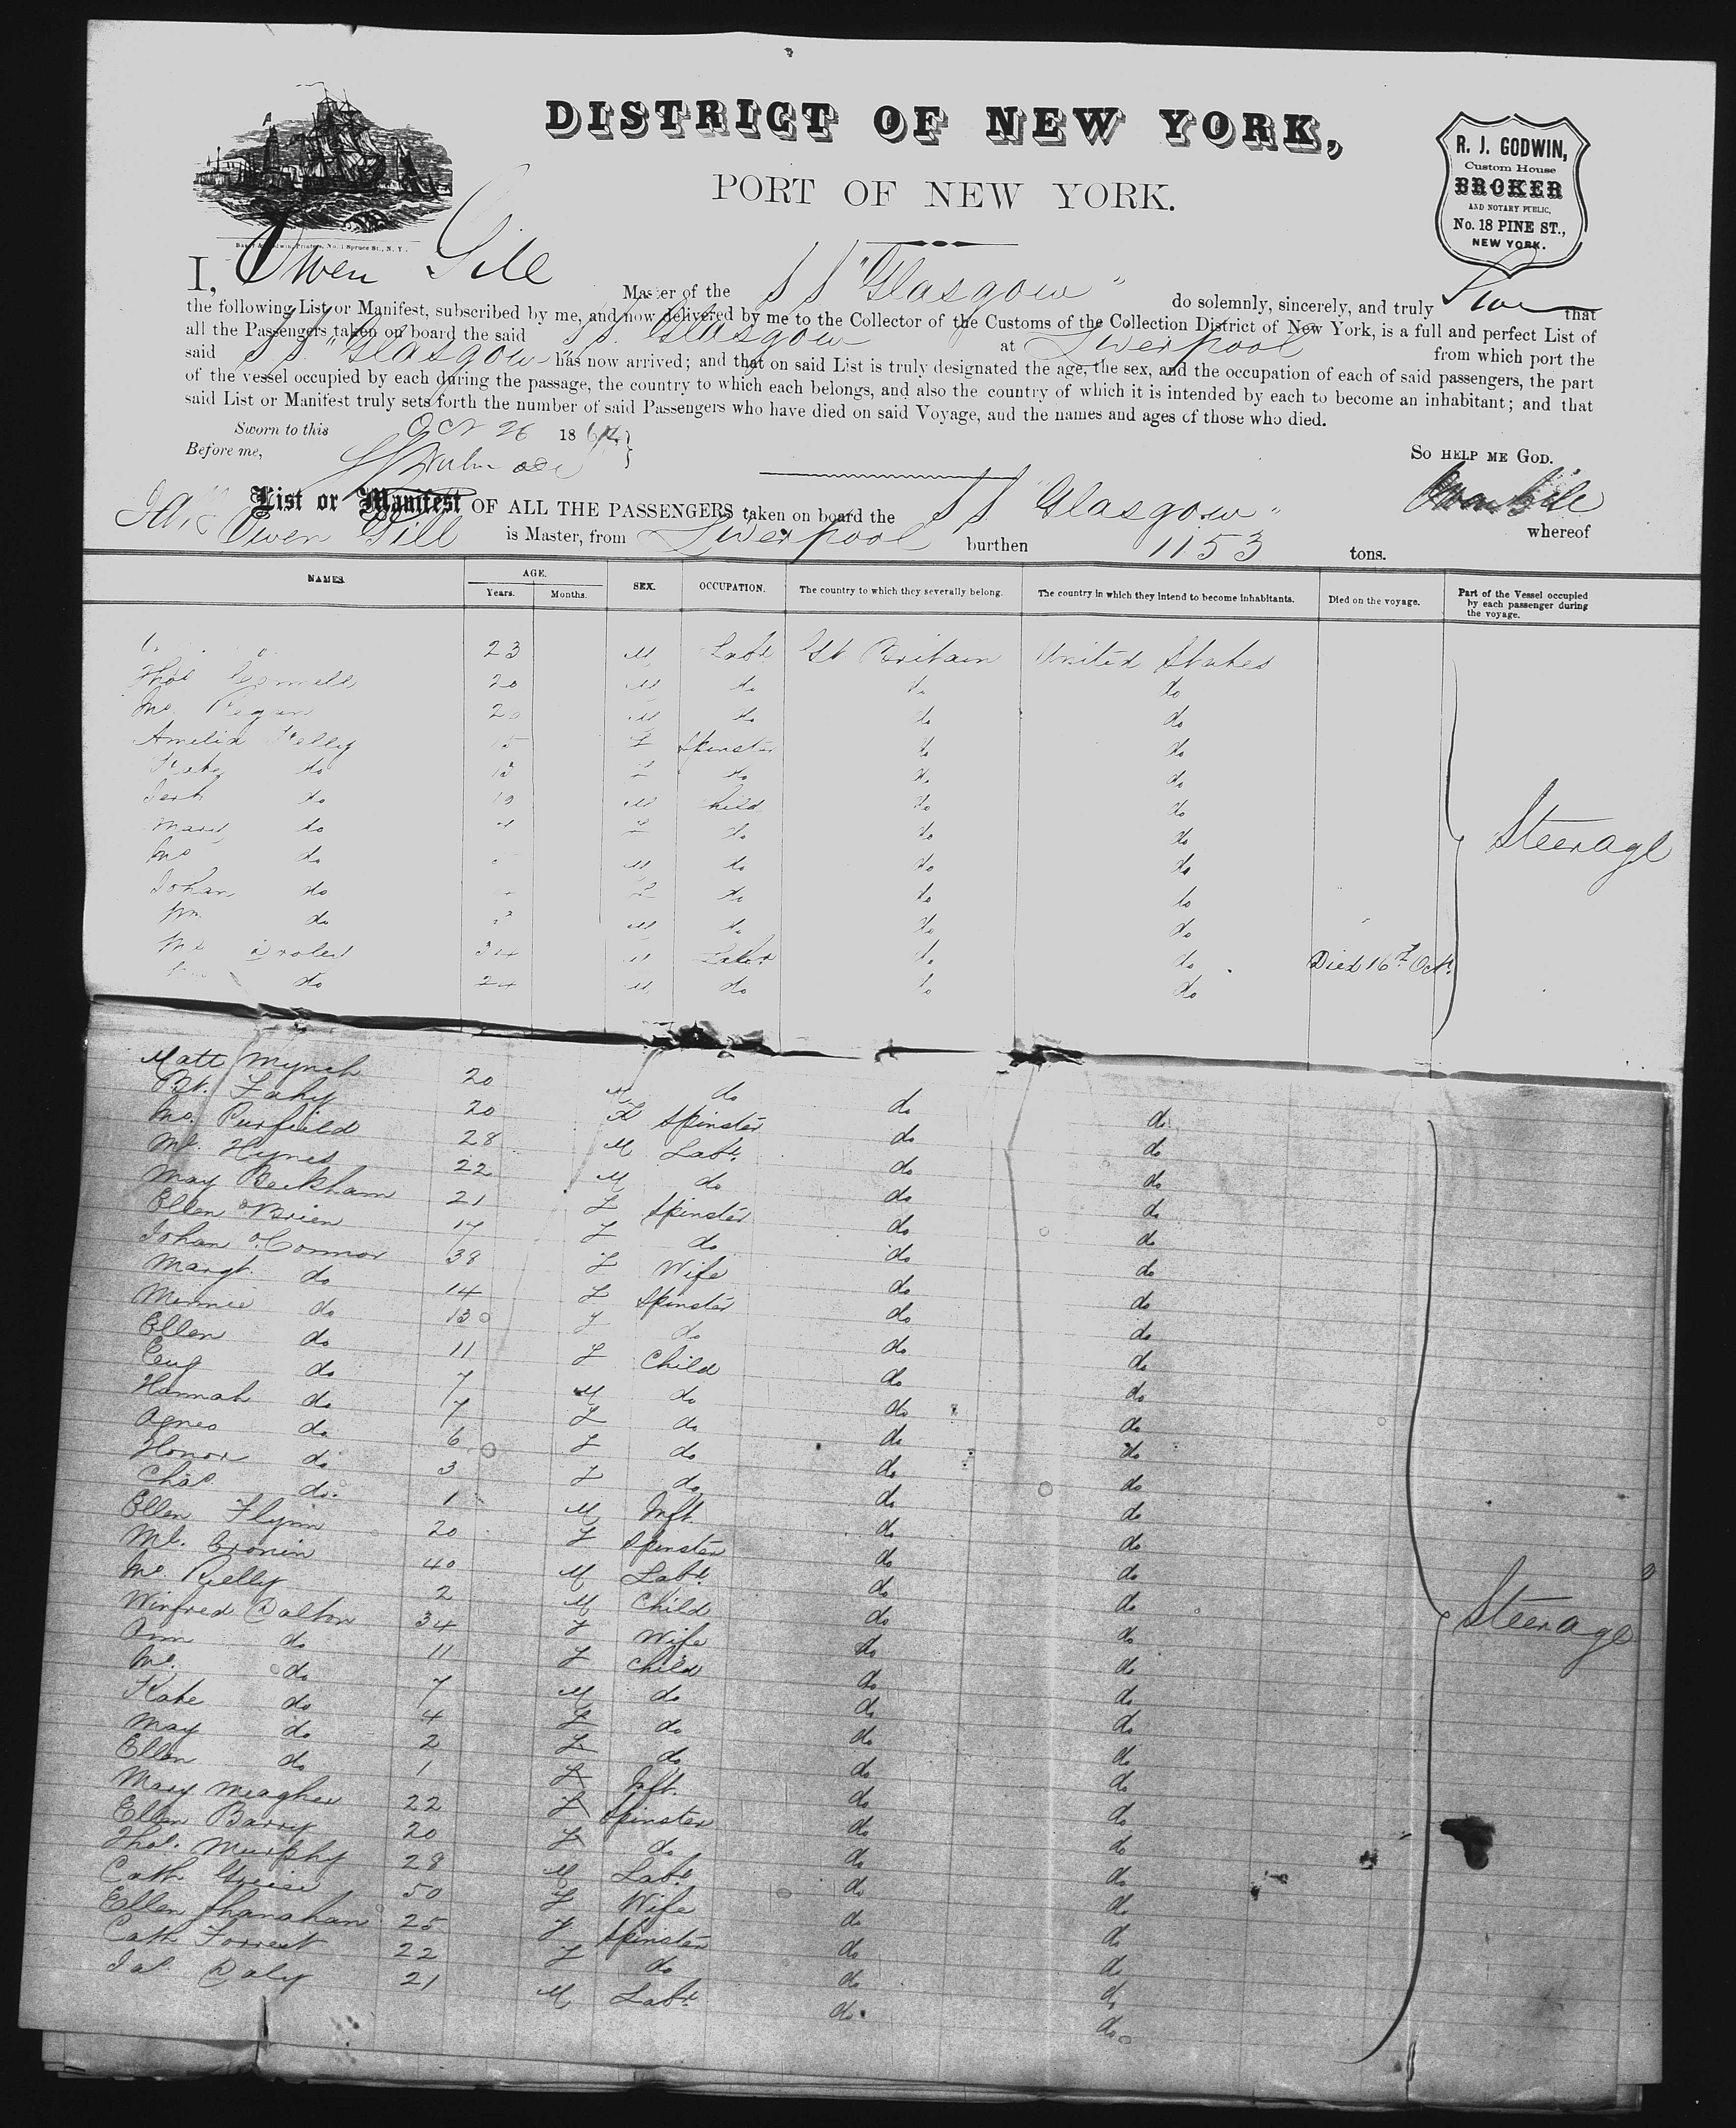 DISTRICT OF NEW YORK,
PORT OF NEW YORK.
R. J. GODWIN,
Custom House
BROKER
AND NOTARY PUBLIC,
No. 18 PINE ST.,
NEW YORK.
I, Owen Gill Master of the SS "Glasgow" do solemnly, sincerely, and truly that
the following List or Manifest, subscribed by me, and now delivered by me to the Collector of the Customs of the Collection District of New York, is a full and perfect List of
all the Passengers taken on board the said SS. Glasgow at Liverpool from which port the
said SS "Glasgow" has now arrived; and that on said List is truly designated the age, the sex, and the occupation of each of said passengers, the part
of the vessel occupied by each during the passage, the country to which each belongs, and also the country of which it is intended by each to become an inhabitant; and that
said List or Manifest truly sets forth the number of said Passengers who have died on said Voyage, and the names and ages of those who died.
Sworn to this Oct 26 1864
Before me,
SO HELP ME GOD.
List or Manifest OF ALL THE PASSENGERS taken on board the SS "Glasgow" whereof
Owen Gill is Master, from Liverpool burthen 1153 tons.
NAMES. AGE. Years. Months. SEX. OCCUPATION. The country to which they severally belong. The country in which they intend to become inhabitants. Died on the voyage. Part of the Vessel occupied by each passenger during the voyage.
23 M Labr Gt. Britain United States
Thos 20 M do do do
Jno. 20 M do do do
Amelia Kelly 15 F Spinster do do
Kate do 13 F do do do
do 10 M Child do do
do F do do do
Jno do M do do do
Steerage
Johan do F do do to
Wm. do M do do do
34 M Labr do do Died 16th Oct.
do 24 M do do do
Matt Mynch 20 M do do do
Bt. Fahy 20 F Spinster do do
Jno. Purfield 28 M Labr. do do
Ml. Hynes 22 M do do do
May Beckham 21 F Spinster do do
Ellen OBrien 17 F do do do
Johan O.Connor 38 F Wife do do
Margt. do 14 F Spinster do do
Minnie do 13 F do do do
Ellen do 11 F Child do do
Eug do 7 M do do do
Hannah do 7 F do do do
Agnes do 6 F do do do
Honor do 3 F do do do
Chas. do. 1 M Inft. do do
Ellen Flynn 20 F Spinster do do
Ml. Cronin 40 M Labr. do do
Jno. Rielly 2 M Child do do
Winfred Dalton 34 F Wife do do
Steerage
Ann do 11 F Child do do
Jno. do 7 M do do do
Kate do 4 F do do do
May do 2 F do do do
Ellen do 1 F Inft. do do
Mary Meagher 22 F Spinster do do
Ellen Barry 20 F do do do
Thos. Murphy 28 M Labr do do
Cath 50 F Wife do do
Ellen Shanahan 25 F Spinster do do
Cath Forrest 22 F do do do
Jas. Daly 21 M Labr. do do